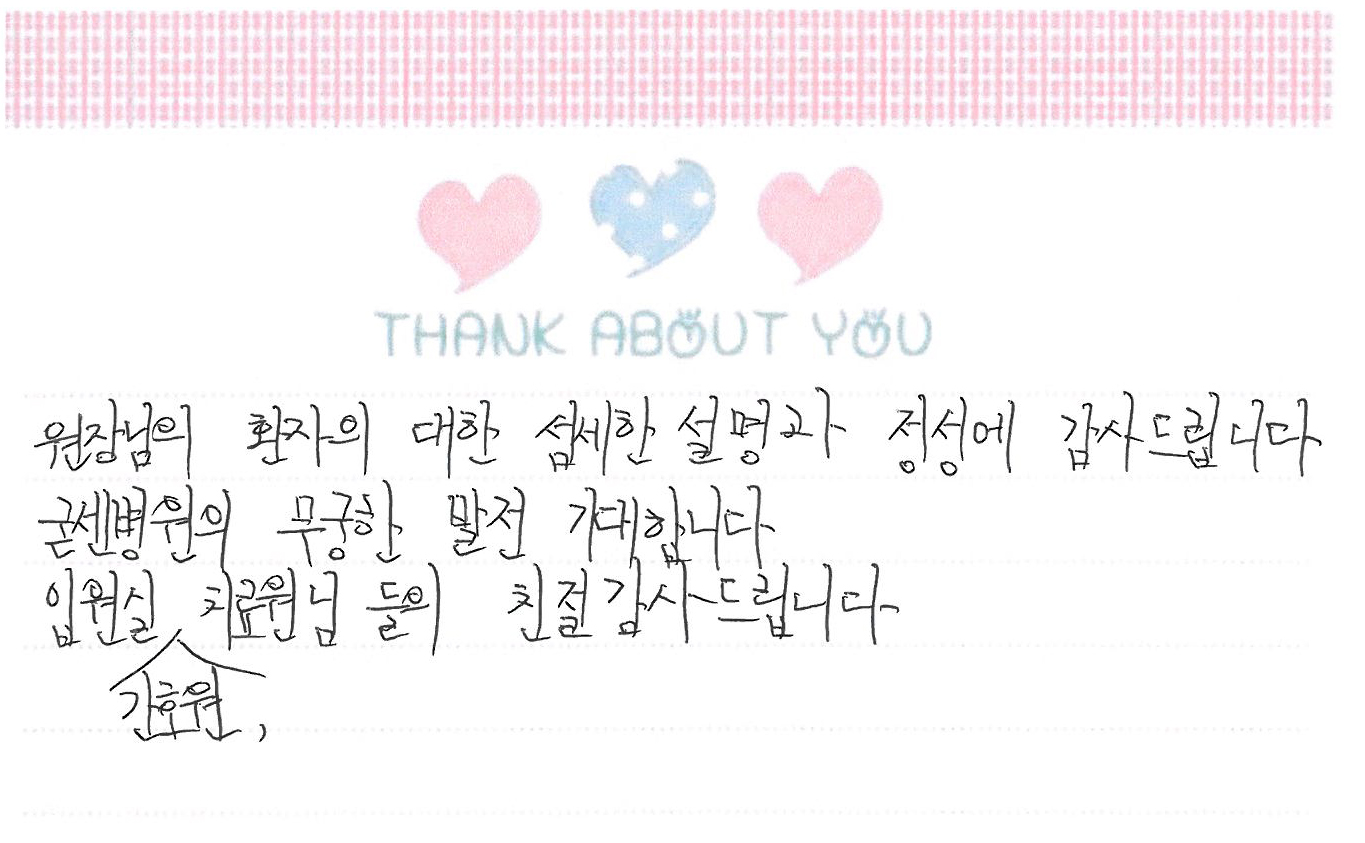 THANK ABOUT YOU
원장님의 환자의 대한 섬세한 설명과 정성에 감사드립니다
굳센병원의 무궁한 발전 기대합니다
입원실 치료원님 들의 친절감사드립니다
간호원,